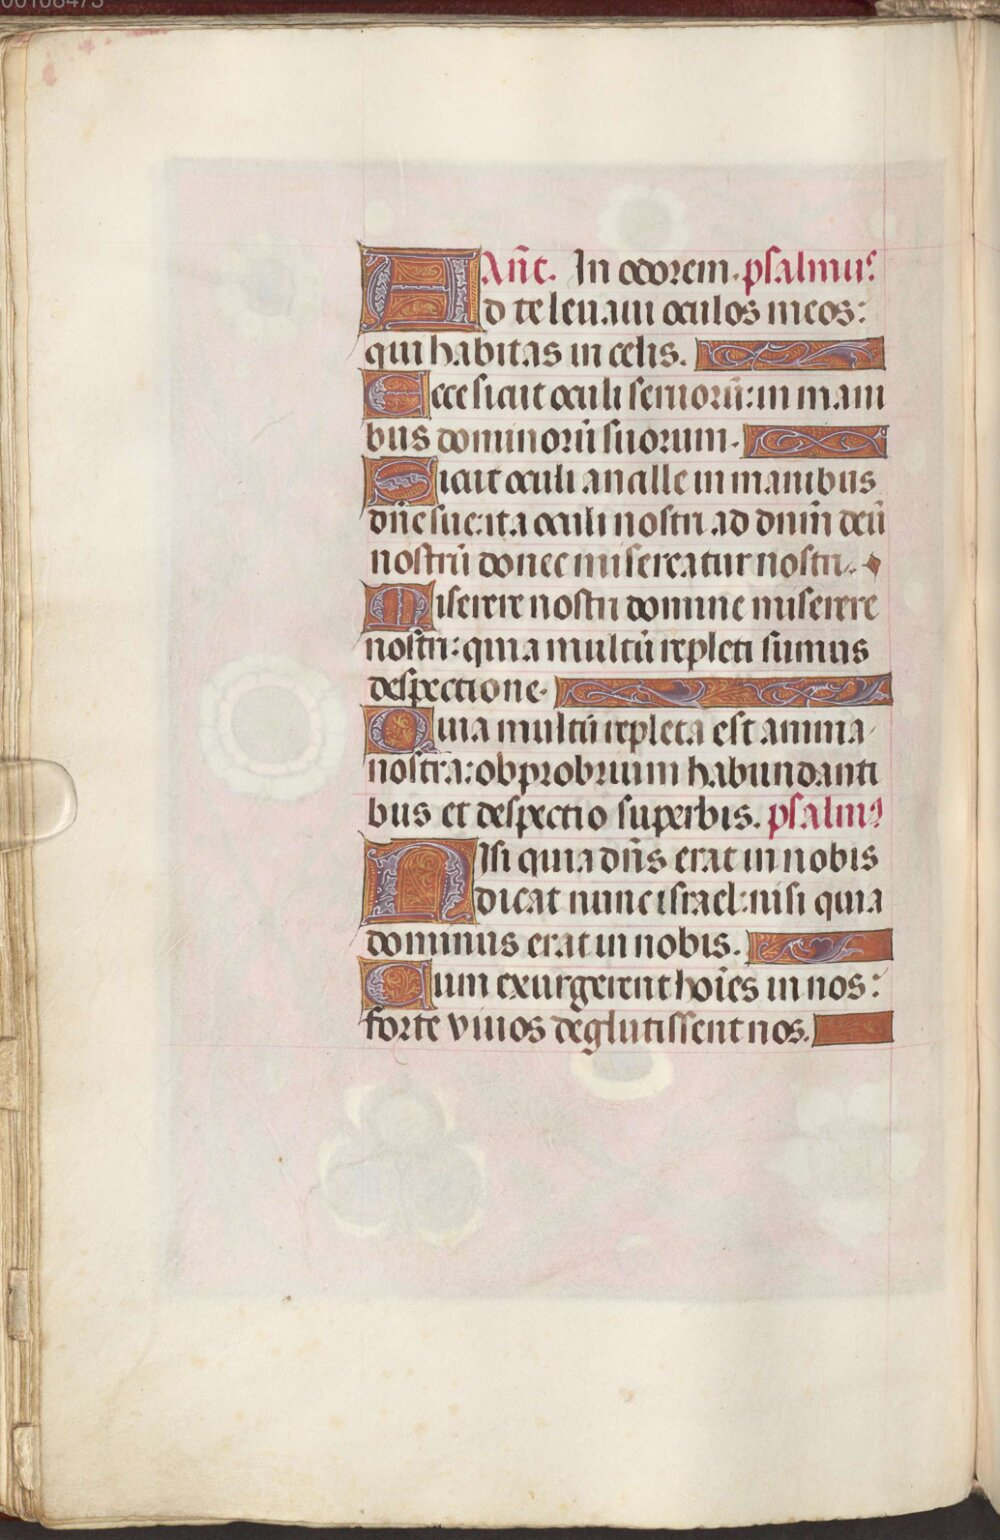 00108473
Añt. In odorem. psalmus
Ad te leuaui oculos meos:
qui habitas in celis.
Ecce sicut oculi seruorũ: in mani
bus dominorũ suorum.
Sicut oculi ancille in manibus
dñe sue: ita oculi nostri ad dnm̃ deũ
nostrũ donec misereatur nostri.
Miserere nostri domine miserere
nostri: quia multũ repleti sumus
despectione.
Quia multũ repleta est anima
nostra: obprobrium habundanti
bus et despectio superbis. psalmꝰ
NIsi quia dñs erat in nobis
dicat nunc israel: nisi quia
dominus erat in nobis.
Cum exurgerent hoĩes in nos:
forte viuos deglutissent nos.